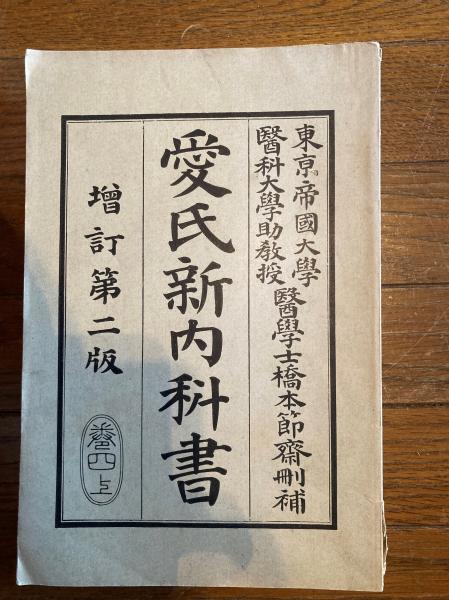 東京帝國大學
醫科大學助教授
醫學士橋本節齋刪補
愛氏新内科書
增訂第二版
卷四上